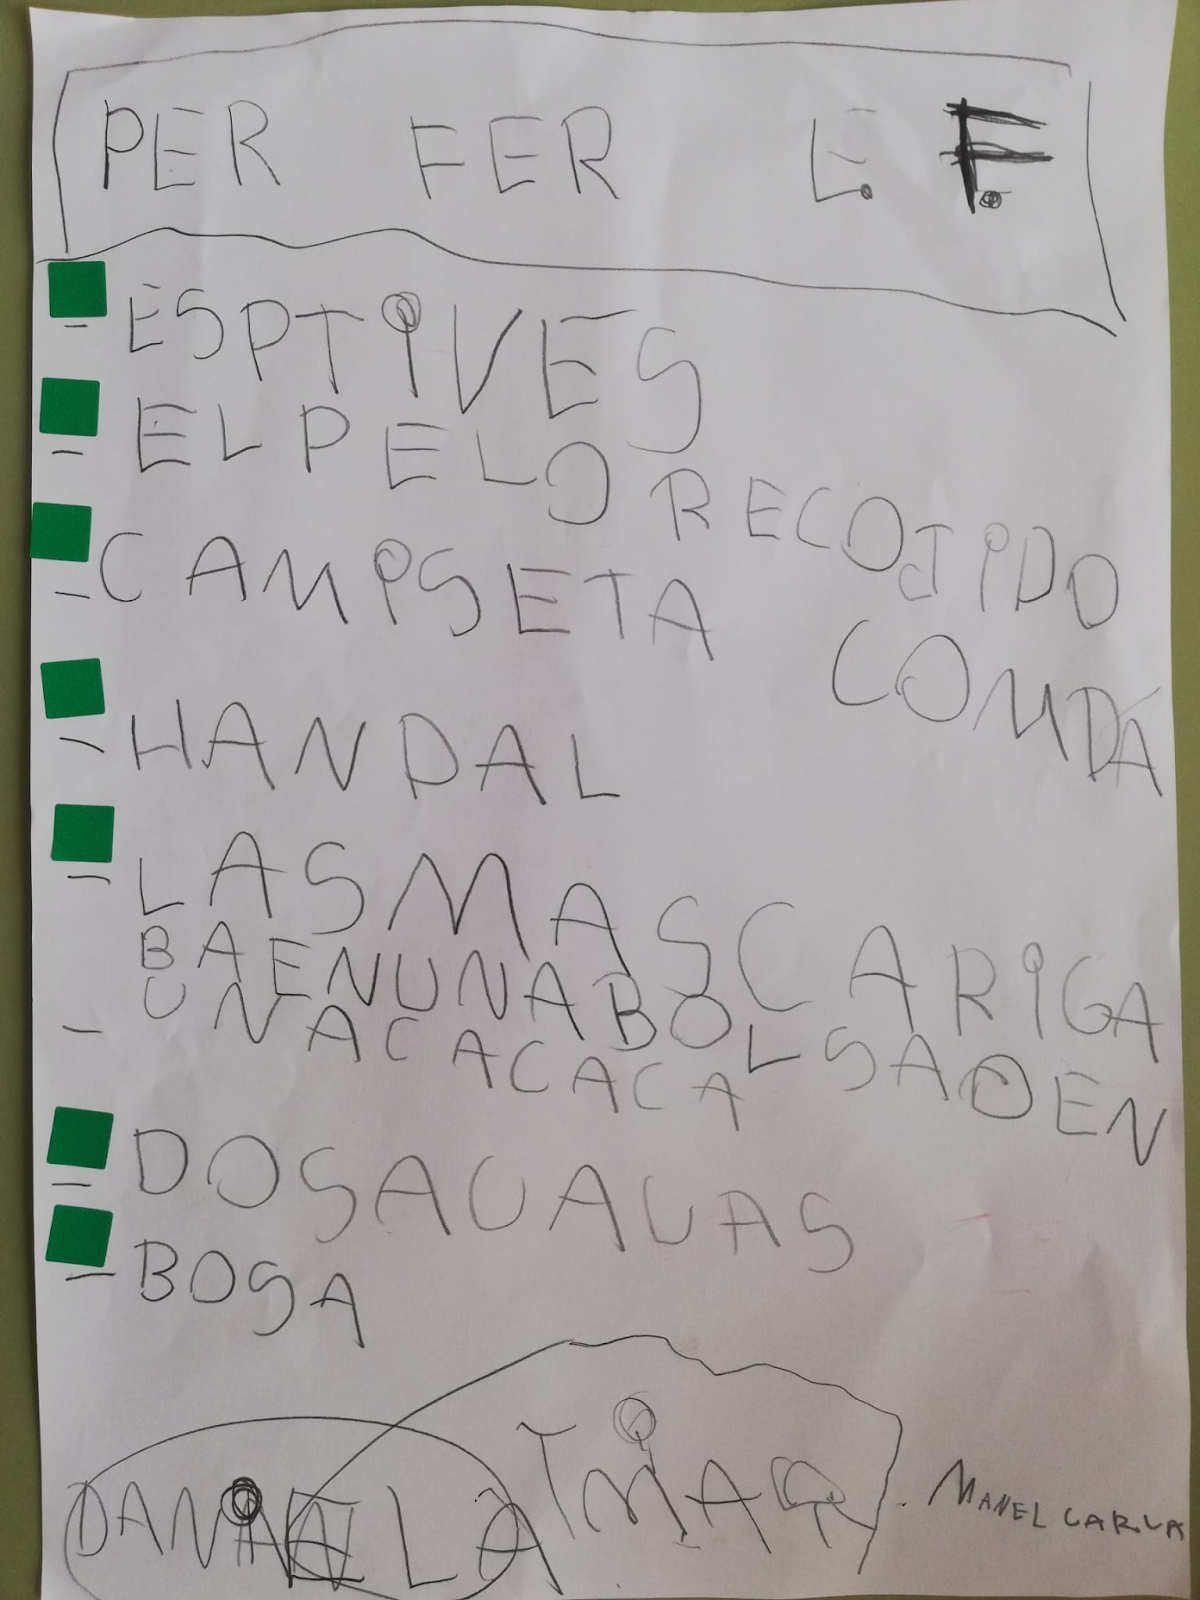 PER FER E. F.
- ESPTIVES
- EL PELO RECOJIDO
- CAMPSETA COMDA
- HANDAL
- LAS MASCARIGA
BA EN UNA BOLSA O EN
- UNA CACACACA
- DOS AUAUAS
- BOSA
DANIELA
MANEL CARLA